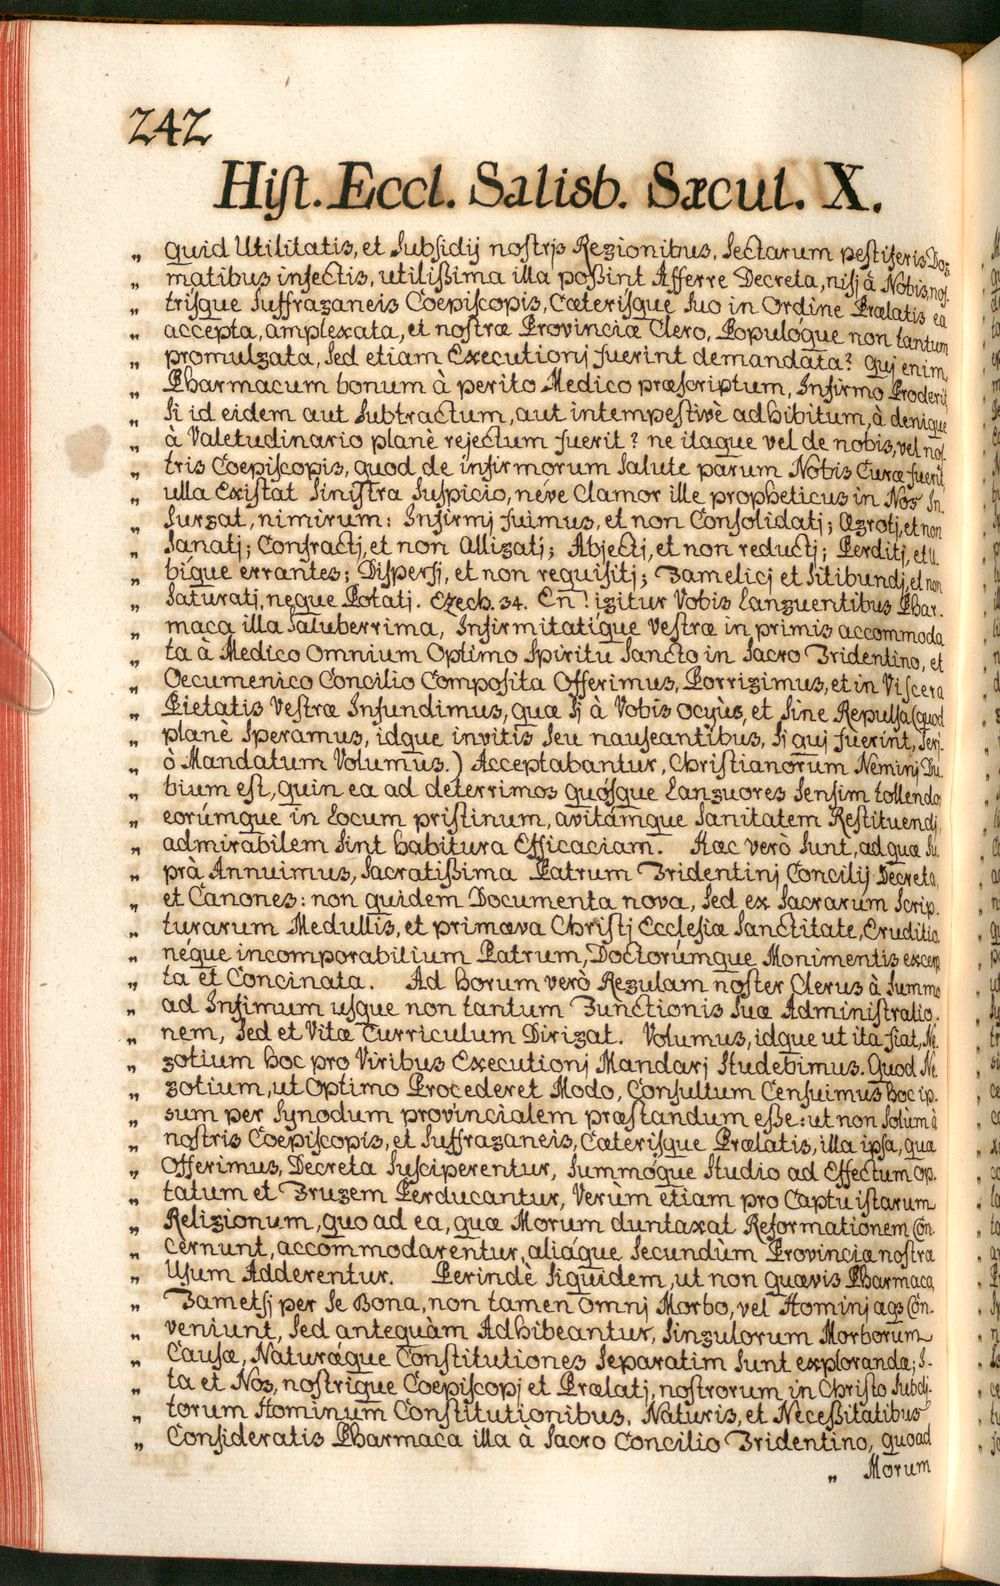 242
Hist. Eccl. Salisb. Sæcul. X.
„ quid Utilitatis, et Subsidij nostrjs Regionibus, Sectarum pestiferis Dog
„ matibus infectis, utilißima illa poßint Afferre Decreta, nisj à Nobis, nos-
„ trisque Suffraganeis Coepiscopis, Cæterisque Suo in Ordine Prælatis ea
„ accepta, amplexata, et nostræ Provinciæ Clero, Populóque non tantum
„ promulgata, Sed etiam Executionj fuerint demandata? Quj enim
„ Pharmacum bonum à perito Medico præscriptum, Infirmo Proderit,
„ Si id eidem aut Subtractum, aut intempestivè adhibitum, à denique
„ à Valetudinario planè rejectum fuerit? ne itaque vel de nobis, vel nos-
„ tris Coepiscopis, quod de infirmorum Salute parum Nobis Curæ fuerit,
„ ulla Existat Sinistra Suspicio, néve Clamor ille propheticus in Nos In-
„ Surgat, nimirum: Infirmj fuimus, et non Consolidatj; Ægrotj, et non
„ Sanatj; Confractj, et non Alligatj; Abjectj, et non reductj; Perditj, et u-
„ bique errantes; Dispersj, et non requisitj; Famelicj et Sitibundj, et non
„ Saturatj, neque Potatj. Ezech. 34. En! igitur Vobis Languentibus Phar-
„ maca illa Saluberrima, Infirmitatique Vestræ in primis accommoda
„ ta à Medico Omnium Optimo Spiritu Sancto in Sacro Tridentino, et
„ Oecumenico Concilio Composita Offerimus, Porrigimus, et in Viscera
„ Pietatis Vestræ Infundimus, quæ Sj à Vobis ocyùs, et Sine Repulsa (quod
„ planè Speramus, idque invitis Seu nauseantibus, Sj quj fuerint, Serj-
„ ò Mandatum Volumus.) Acceptabantur, Christianorum Neminj Du-
„ bium est, quin ea ad deterrimos quósque Languores Sensim tollendos
„ eorúmque in Locum pristinum, avitámque Sanitatem Restituendj,
„ admirabilem Sint habitura Efficaciam. Hæc verò Sunt, ad quæ Su-
„ prà Annuimus, Sacratißima Patrum Tridentinj Concilij Decreta,
„ et Canones: non quidem Documenta nova, Sed ex Sacrarum Scrip-
„ turarum Medullis, et primæva Christj Ecclesiæ Sanctitate, Eruditio-
„ néque incomporabilium Patrum, Doctorúmque Monimentis excerp
„ ta et Concinata. Ad horum verò Regulam noster Clerus à Summo
„ ad Infimum usque non tantum Functionis Suæ Administratio-
„ nem, Sed et Vitæ Curriculum Dirigat. Volumus, idque ut ita fiat, Ne-
„ gotium hoc pro Viribus Executionj Mandarj Studebimus. Quod Ne-
„ gotium, ut Optimo Procederet Modo, Consultum Censuimus hoc ip-
„ sum per Synodum provincialem præstandum eße: ut non Solùm à
„ nostris Coepiscopis, et Suffraganeis, Cæterisque Prælatis, illa ipsa, quæ
„ Offerimus, Decreta Susciperentur, Summóque Studio ad Effectum op-
„ tatum et Frugem Perducantur, Verùm etiam pro Captu istarum
„ Religionum, quo ad ea, quæ Morum duntaxat Reformationem Con-
„ cernunt, accommodarentur, aliáque Secundùm Provinciæ nostræ
„ Usum Adderentur. Perindè Siquidem, ut non quævis Pharmaca,
„ Tametsj per Se Bona, non tamen Omnj Morbo, vel Hominj æqs Con-
„ veniunt, Sed antequàm Adhibeantur, Singulorum Morborum
„ Causæ, Naturæque Constitutiones Separatim Sunt explorandæ; I-
„ ta et Nos, nostrique Coepiscopj et Prælatj, nostrorum in Christo Subdj-
„ torum Hominum Constitutionibus, Naturis, et Neceßitatibus
„ Consideratis Pharmaca illa à Sacro Concilio Tridentino, quoad
„ Morum